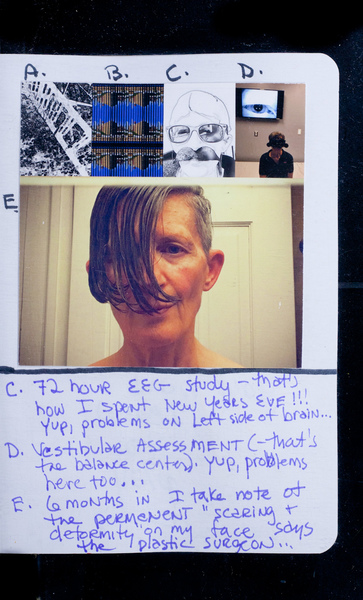 A. B. C. D.
E.
C. 72 hour EEG study - that's
how I spent New Years EVE!!!
Yup, problems on Left side of brain...
D. Vestibular ASSESSMENT (-that's
the balance center). Yup, problems
here too...
E. 6 months in I take note of
the permenent "scaring +
deformity" on my face says
the plastic surgeon...